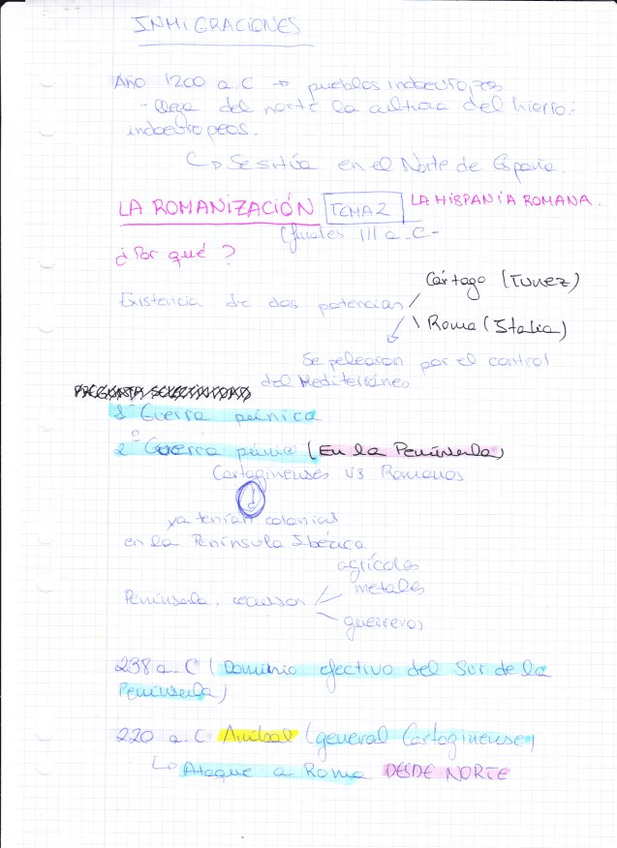 INMIGRACIONES
Año 1200 a.C → pueblos indoeuropeos
- llega del norte la cultura del hierro:
indoeuropeos.
↳ Se sitúa en el Norte de España.
LA ROMANIZACIÓN TEMA 2 LA HISPANIA ROMANA.
(finales III a.C-
¿Por qué?
Cártago (Tunez)
Existencia de dos potencias /
\ Roma (Italia)
Se pelearon por el control
del Mediterráneo
PREGUNTA SELECTIVIDAD
1ª Guerra púnica
2ª Guerra púnica (En la Península)
Cartaginenses VS Romanos
↓
ya tenían colonias
en la Península Ibérica
agrícolas
Península, recursos metales
guerreros
238 a.C (Dominio efectivo del Sur de la
Península)
220 a.C Anibal (general Cartaginense)
↳ Ataque a Roma DESDE NORTE